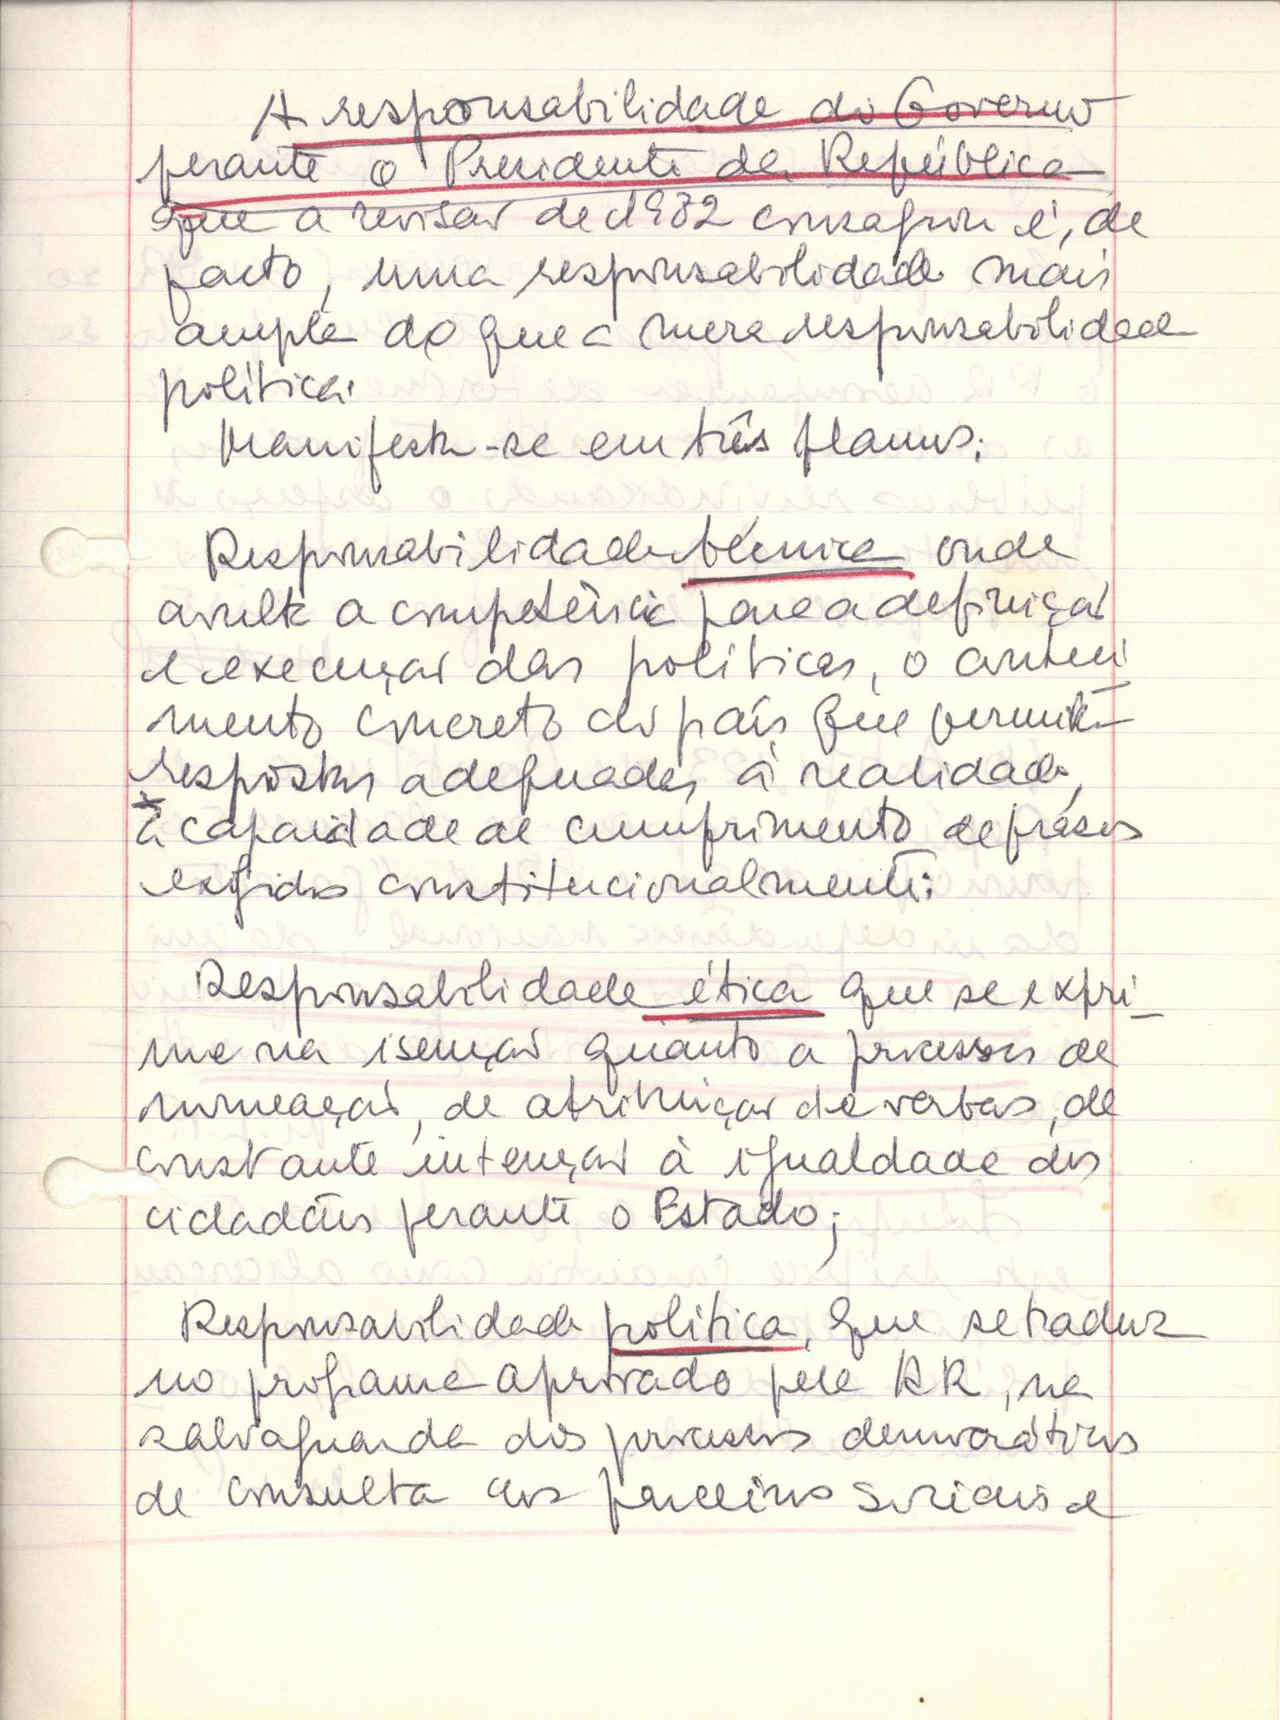 A responsabilidade do Governo
perante o Presidente da República
que a revisão de 1982 consagrou é, de
facto, uma responsabilidade mais
ampla do que a mera responsabilidade
política.
Manifesta-se em três planos:
Responsabilidade técnica onde
avulta a competência para a definição
e execução das políticas, o conheci
mento concreto do país que permite
respostas adequadas à realidade,
a capacidade de cumprimento de prazos
exigidos constitucionalmente;
Responsabilidade ética que se expri-
me na isenção quanto a processos de
nomeação, de atribuição de verbas, de
constante intenção à igualdade dos
cidadãos perante o Estado;
Responsabilidade política, que se traduz
no programa aprovado pela AR, na
salvaguarda dos processos democráticos
de consulta aos parceiros sociais e